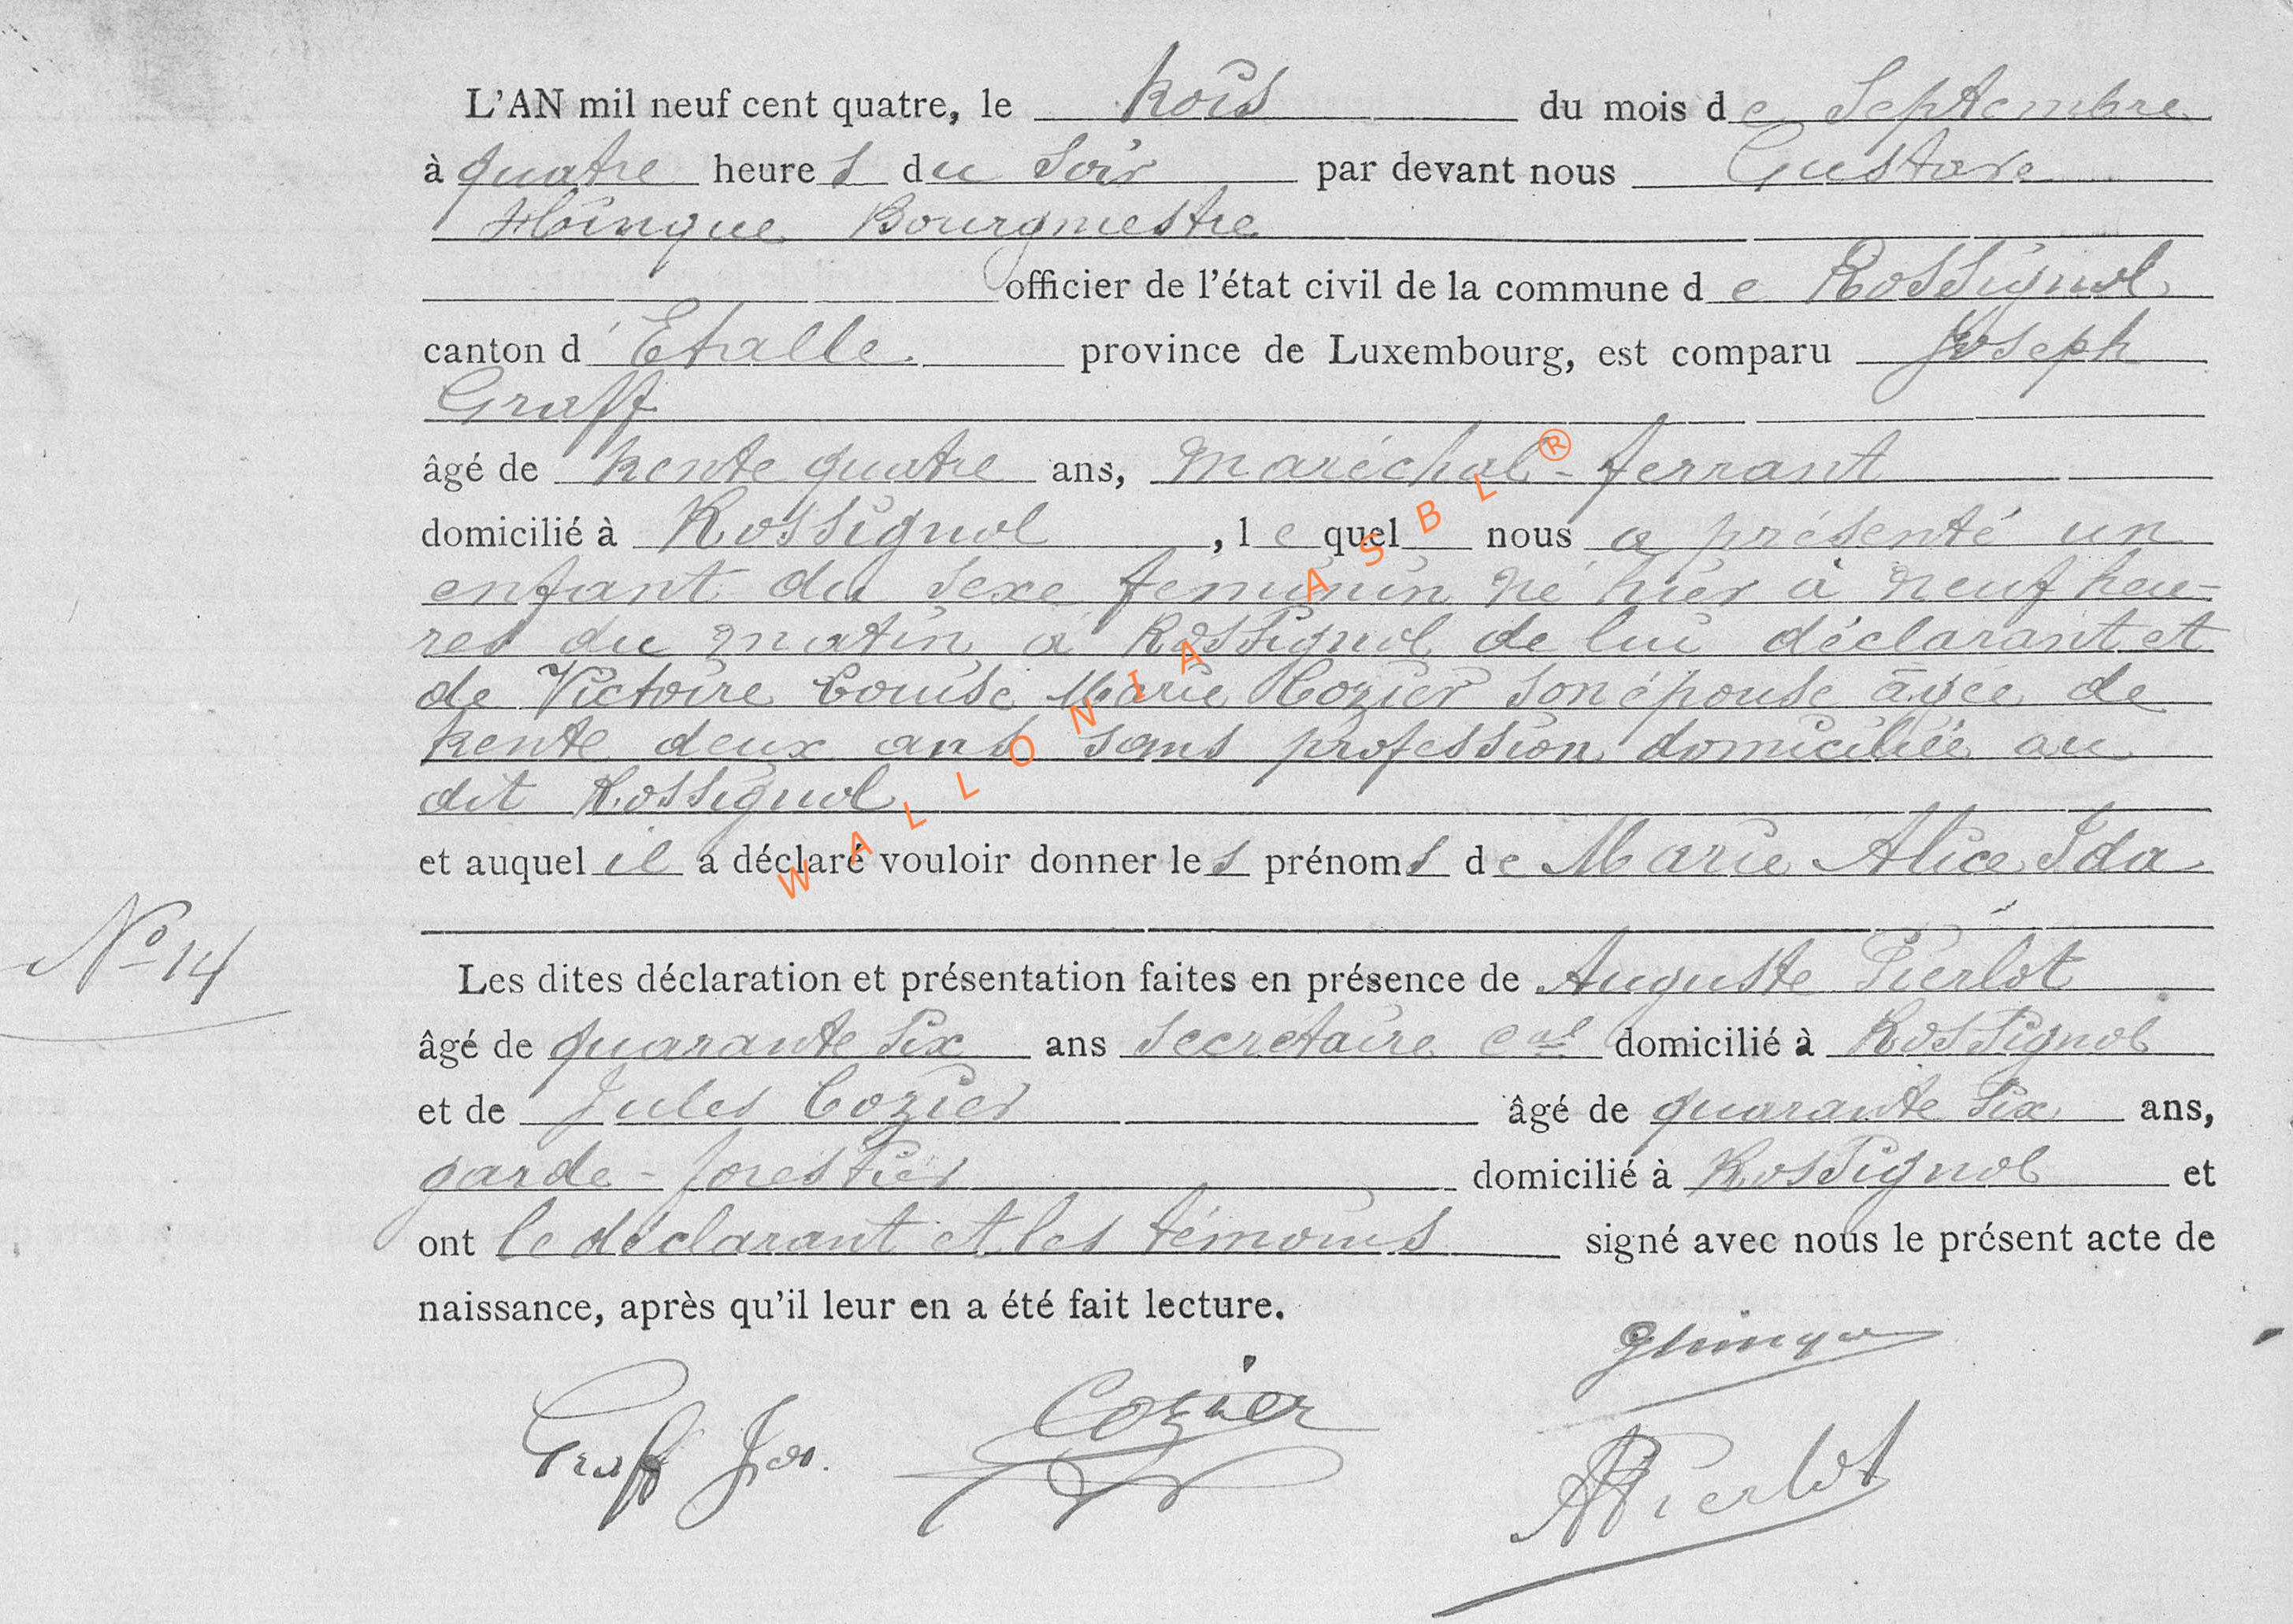 L'AN mil neuf cent quatre, le trois du mois de Septembre
à quatre heures du soir par devant nous Gustave
Hoinque Bourgmestre
officier de l'état civil de la commune de Rossignol
canton d'Etalle province de Luxembourg, est comparu Joseph
Graff
âgé de trente quatre ans, maréchal-ferrant
domicilié à Rossignol, lequel nous a présenté un
enfant du sexe feminin né hier à neuf heu-
res du matin à Rossignol de lui déclarant et
de Victoire Louise Marie Cozier son épouse âgée de
trente deux ans sans profession domiciliée au
dit Rossignol
et auquel il a déclaré vouloir donner les prénoms de Marie Alice Ida
No 14
Les dites déclaration et présentation faites en présence de Auguste Pierlot
âgé de quarante six ans secrétaire cal domicilié à Rossignol
et de Jules Cozier âgé de quarante six ans,
garde-forestier domicilié à Rossignol et
ont le déclarant et les témoins signé avec nous le présent acte de
naissance, après qu'il leur en a été fait lecture.
Graff Jos. Cozier
APierlot
WALLONIA ASBL ®